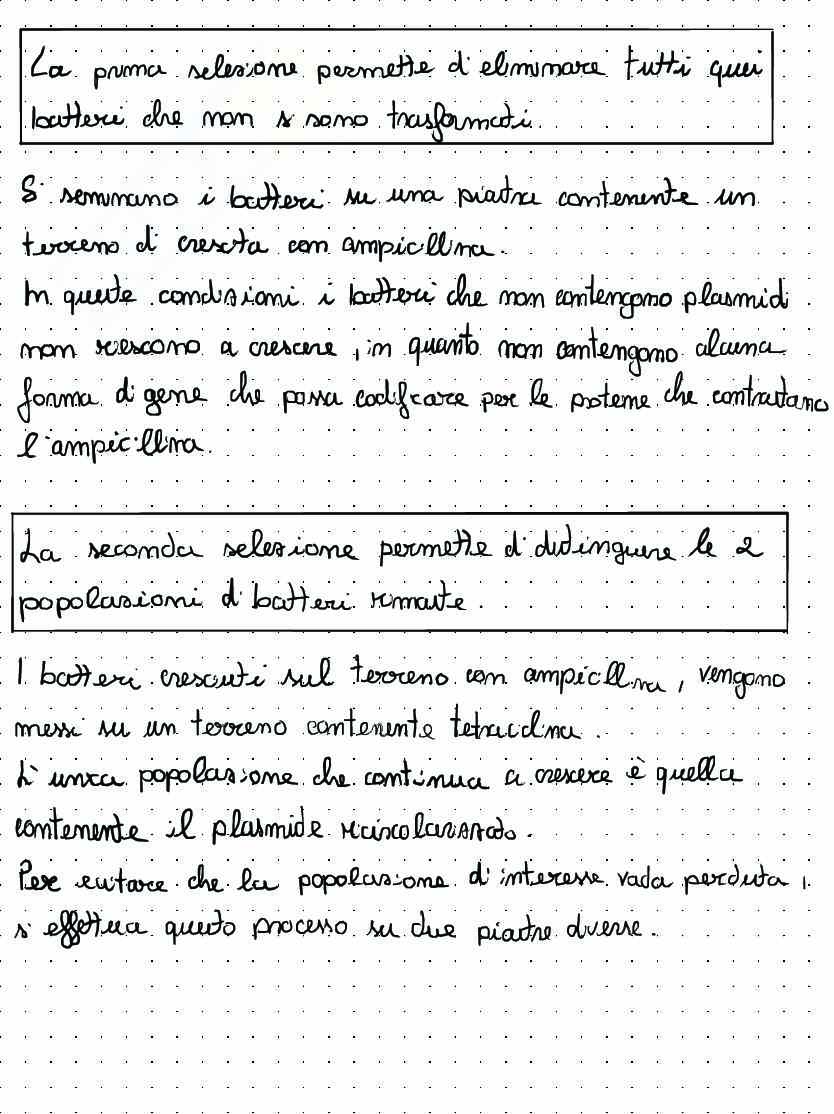 La prima selezione permette di eliminare tutti quei
batteri che non si sono trasformati.
Si seminano i batteri su una piastra contenente un
terreno di crescita con ampicillina.
In queste condizioni i batteri che non contengono plasmidi
non riescono a crescere, in quanto non contengono alcuna
forma di gene che possa codificare per le proteine che contrastano
l'ampicillina.
La seconda selezione permette di distinguere le 2
popolazioni di batteri rimaste.
I batteri cresciuti sul terreno con ampicillina, vengono
messi su un terreno contenente tetraciclina.
L'unica popolazione che continua a crescere è quella
contenente il plasmide ricircolarizzato.
Per evitare che la popolazione di interesse vada perduta,
si effettua questo processo su due piastre diverse.